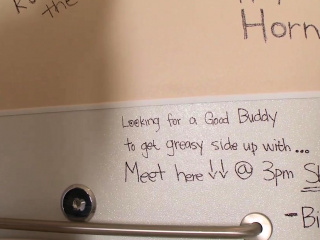 the
Horn
Looking for a Good Buddy
to get greasy side up with...
Meet here ↓↓ @ 3pm